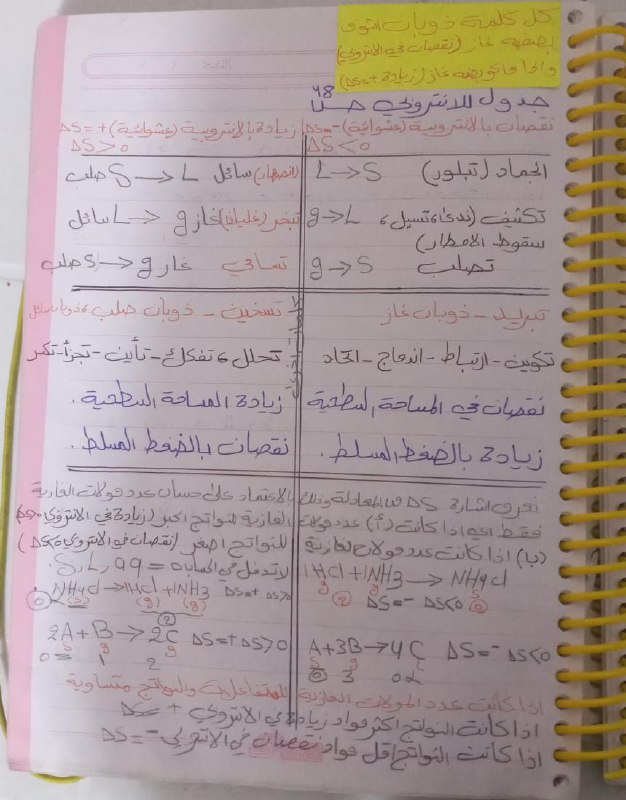 كل كلمة ذوبان التي
بصفيه غاز (نقصان في الانتروبي)
واذا ماكو بصفه غاز (زيادة + = ΔS)
٦٨
جدول للانتروبي حلا
نقصان بالانتروبية (عشوائية) - = ΔS
ΔS < 0
زيادة بالانتروبية (عشوائية) + = ΔS
ΔS > 0
انجماد (تبلور) L → S
انصهار) سائل S → L صلب
تكثيف (ندى، تسيل، g → L
سقوط الامطار)
تبخر (غليان) غاز L → g سائل
تصلب g → S
تسامي غاز S → g صلب
تبريد - ذوبان غاز
تسخين - ذوبان صلب، ذوبان سائل
تكوين - ارتباط - اندماج - اتحاد
تحلل، تفكك - تأين - تجزأ - تكسر
نقصان في المساحة السطحية
زيادة المساحة السطحية .
زيادة بالضغط المسلط .
نقصان بالضغط المسلط .
نعرف اشارة ΔS من المعادلة وذلك بالاعتماد على حساب عدد مولات الغازية
فقط اي اذا كانت (أ) عدد مولات الغازية للنواتج اكبر (زيادة في الانتروبي ΔS>0
(ب) اذا كانت عدد مولات الغازية للنواتج اصغر (نقصان في الانتروبي ΔS<0)
لا تدخل في الحساب = S, L, aq
1HCl + 1NH3 → NH4Cl
g g s
② ΔS = - ΔS<0 ⓪
NH4Cl → 1HCl + 1NH3 ΔS = + ΔS>0
⓪ (s) (g) (g)
②
A + 3B → 4C ΔS = - ΔS<0
s g L
⓪ 3 0
2A + B → 2C ΔS = + ΔS>0
s g g
0 1 2
اذا كانت عدد المولات الغازية للمتفاعلات والنواتج متساوية
اذا كانت النواتج اكثر مواد زيادة في الانتروبي + = ΔS
اذا كانت النواتج اقل مواد نقصان في الانتروبي - = ΔS